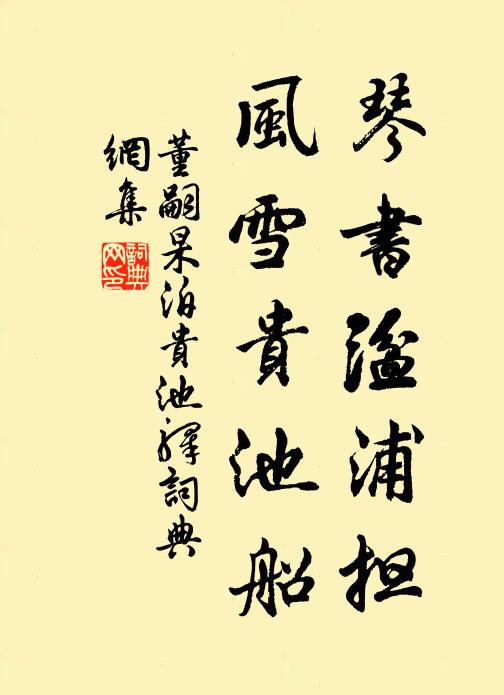 琴書湓浦担
風雪貴池船
董嗣杲泊貴池驛詞典
網集
詞典
网印